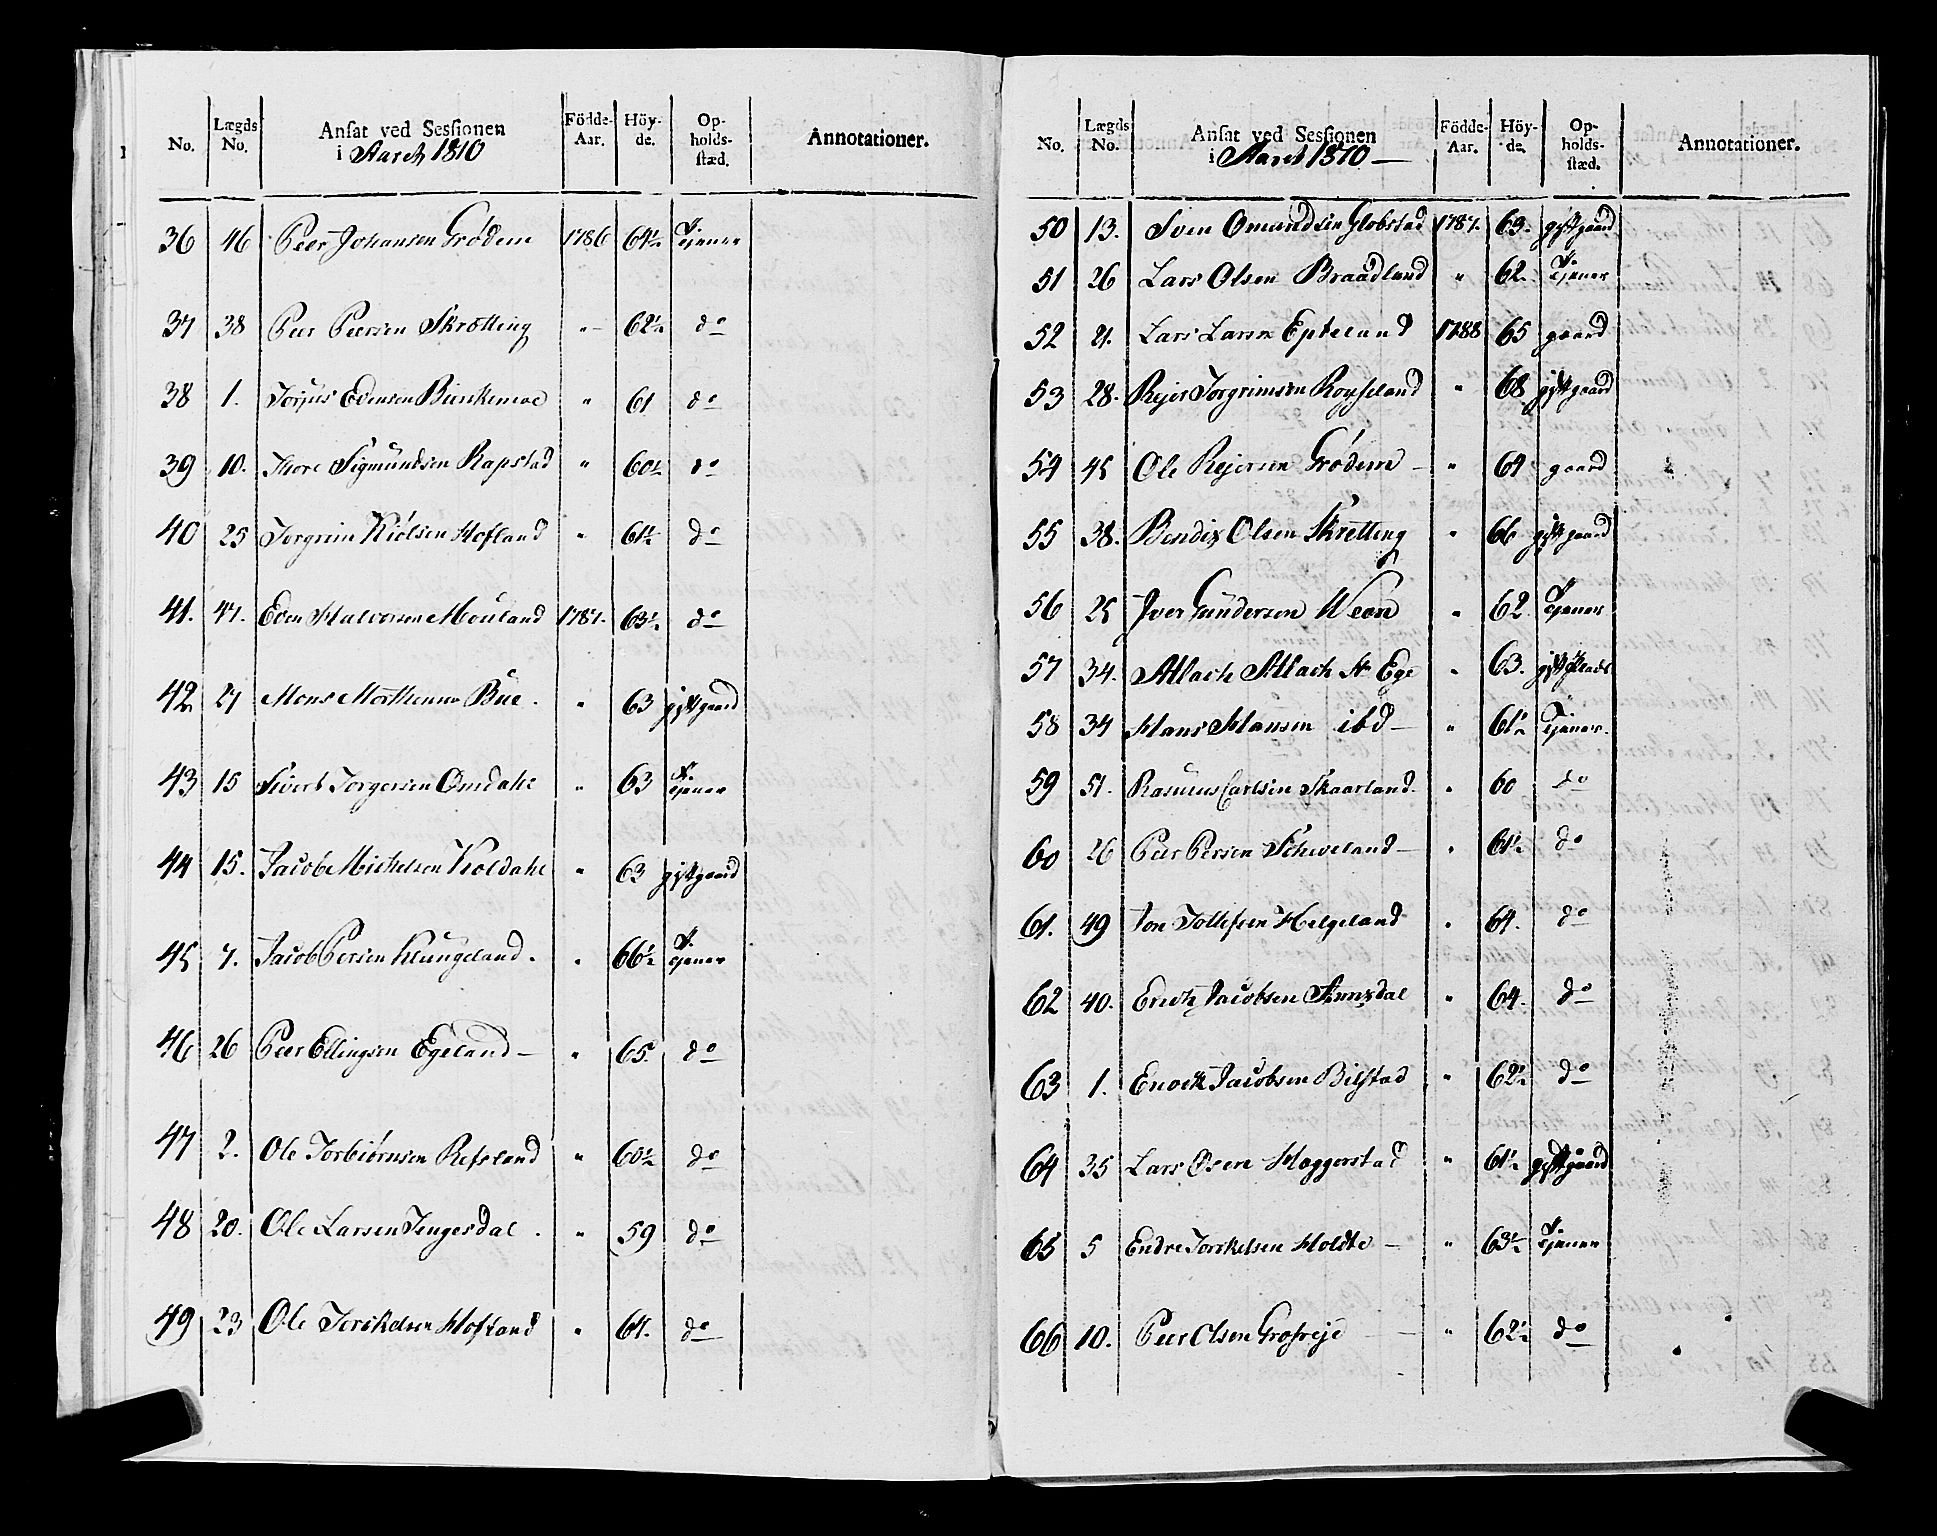 No. Lægds No. Ansat ved Sessionen i Aaret 1810 Födde-Aar. Höy-de. Op-holds-stæd. Annotationer.
36 46 Peer Johansen Grødem 1786 64½ Tjener
37 38 Peer Peersen Skrætting " 62½ do
38 1. Torjus Edensen " 61 do
39 10. Thore Sigmundsen Rapstad " 60½ do
40 25 Torgrim Kiølsen Hofland " 61½ do
41. 47. Even Halvorsen Mouland 1787. 63½ do
42 27 Mons Bue. " 63 gift gaard
43 15 Sivert Torgersen Omdahl " 63 Tjener
44 15. Jacob Michelsen Koldahl " 63 gift gaard
45 7. Jacob Persen Klungeland. " 66½ Tjener
46 26 Peer Ellingsen Egeland " 65. do
47 2. Ole Torbiørnsen Refsland " 60½ do
48 20. Ole Larsen Tengesdal. " 59 do
49 23 Ole Torkelsen Hofland " 64. do
No. Lægds No. Ansat ved Sessionen i Aaret 1810 Födde-Aar. Höy-de. Op-holds-stæd. Annotationer.
50 13. Sven Omundsen Globstad 1787. 63. gift gaard
51 26 Lars Olsen Braadland " 62 Tjener
52 21. Lars Larsen Epteland 1788 65 gaard
53 28. Rejer Torgrimsen Røysland " 68 gift gaard
54 45 Ole Rejersen Grødem " 64 gaard
55 38. Bendix Olsen Skrætting " 66 gift gaard
56 25 Iver Gundersen " 62. Tjener
57 34. Atlach Atlach S. Ege " 63. gift
58 34 Hans Hansen ibd " 61½ Tjener.
59 51. Rasmus Carlsen Skaarland. " 60 do
60 26 Peer Persen " 61½ do
61. 49 Ton Tollefsen Helgeland " 64. do
62 40. Jacobsen " 64. do
63 1. Enock Jacobsen Bilstad " 62½ do
64 35 Lars Osen Høggerstad " 61½ gift gaard
65 5 Endre Torkelsen Holdte " 63½ Tjener
66 10. Peer Olsen Grosreje " 62½ do